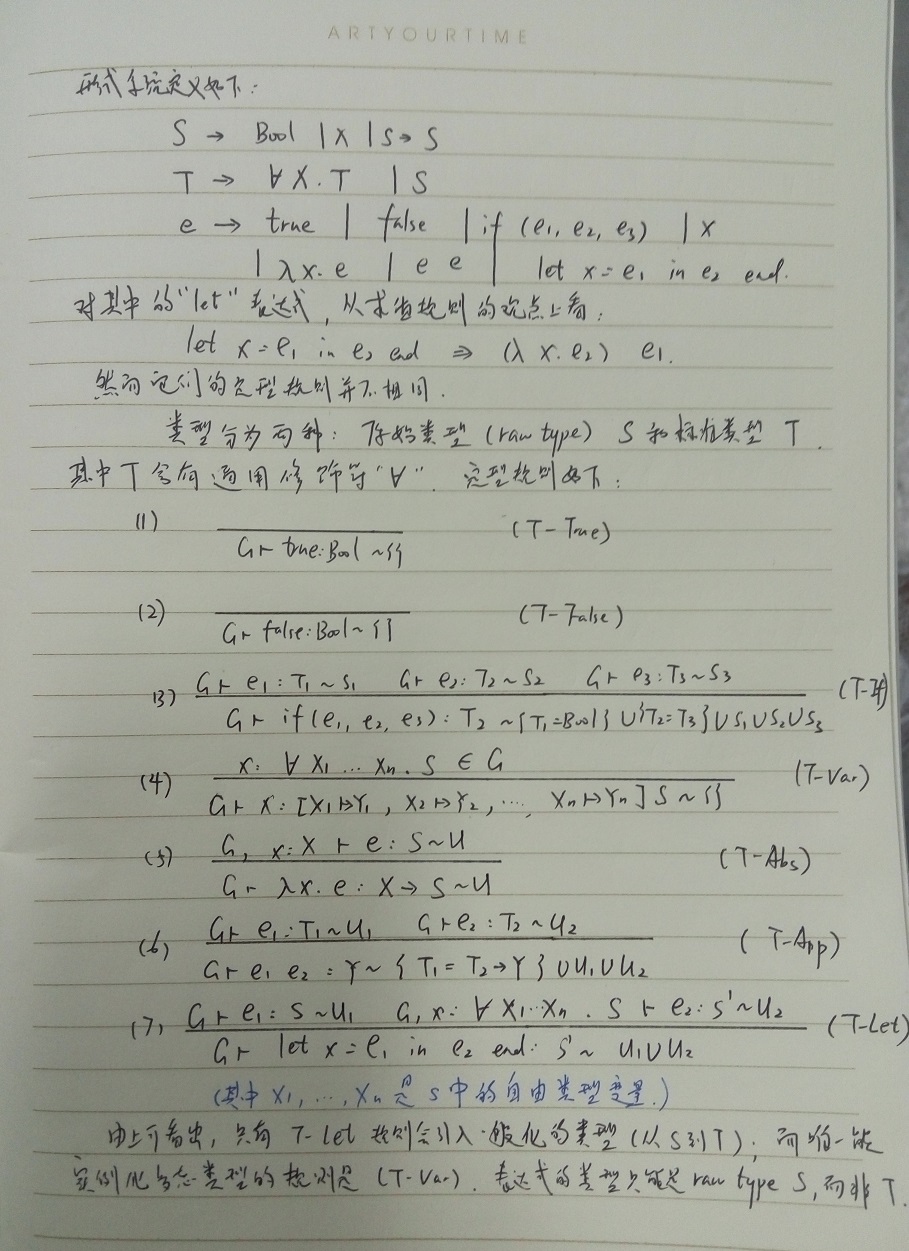 ARTYOURTIME
形式系统定义如下：
S → Bool | X | S→S
T → ∀X.T | S
e → true | false | if (e₁, e₂, e₃) | x
| λx.e | e e | let x = e₁ in e₂ end.
对其中的"let"表达式，从求值规则的观点上看：
let x = e₁ in e₂ end ⇒ (λx.e₂) e₁.
然而它们的定型规则并不相同.
类型分为两种：原始类型 (raw type) S 和标准类型 T.
其中 T 含有通用修饰符"∀". 定型规则如下：
(1) ───── (T-True)
G ⊢ true:Bool ~ {}
(2) ───── (T-False)
G ⊢ false:Bool ~ {}
(3) G ⊢ e₁ : T₁ ~ S₁ G ⊢ e₂ : T₂ ~ S₂ G ⊢ e₃ : T₃ ~ S₃ (T-If)
G ⊢ if (e₁, e₂, e₃) : T₂ ~ {T₁=Bool} ∪ {T₂=T₃} ∪ S₁ ∪ S₂ ∪ S₃
(4) x: ∀ X₁ ... Xn . S ∈ G (T-Var)
G ⊢ x : [X₁↦Y₁, X₂↦Y₂, ..., Xn↦Yn] S ~ {}
(5) G, x: X ⊢ e : S ~ U (T-Abs)
G ⊢ λx.e : X → S ~ U
(6) G ⊢ e₁ : T₁ ~ U₁ G ⊢ e₂ : T₂ ~ U₂ (T-App)
G ⊢ e₁ e₂ : Y ~ {T₁ = T₂→Y} ∪ U₁ ∪ U₂
(7) G ⊢ e₁ : S ~ U₁ G, x: ∀ X₁...Xn . S ⊢ e₂ : S' ~ U₂ (T-Let)
G ⊢ let x = e₁ in e₂ end : S' ~ U₁ ∪ U₂
(其中 X₁, ..., Xn 是 S 中的自由类型变量.)
由上可看出，只有 T-Let 规则会引入一般化的类型 (从 S 到 T)，而唯一能
实例化多态类型的规则是 (T-Var). 表达式的类型只能是 raw type S, 而非 T.